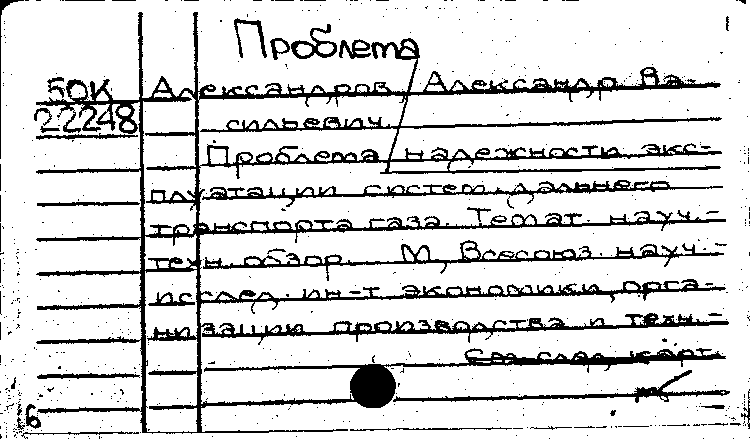 Проблема
БОК Александров, Александр Ва-
22248 сильевич.
Проблема надежности экс-
плуатации систем дальнего
транспорта газа. Темат. науч.-
техн. обзор. М., Всесоюз. науч.-
исслед. ин-т экономики, орга-
низации производства и техн.-
См. след. карт.
6